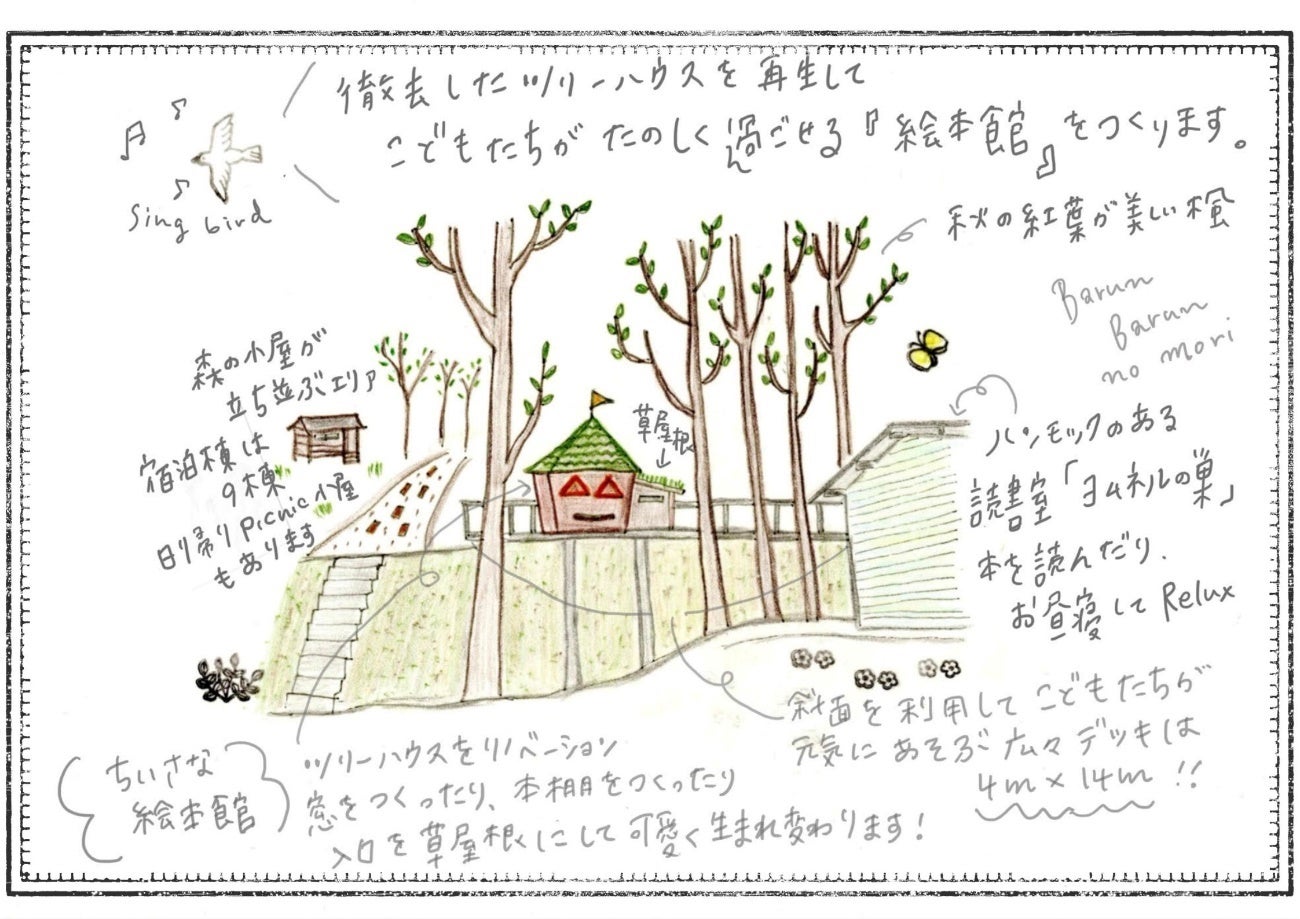 徹去したツリーハウスを再生して
こどもたちがたのしく過ごせる『絵本館』をつくります。
Sing bird
秋の紅葉が美しい楓
Barun
Barun
no mori
森の小屋が
立ち並ぶエリア
宿泊棟は
9棟
日帰りPicnic小屋
もあります
草屋根
ハンモックのある
読書室「ヨムネルの巣」
本を読んだり、
お昼寝してRelux
斜面を利用してこどもたちが
元気にあそぶ広々デッキは
4m×14m!!
ちいさな
絵本館
ツリーハウスをリノベーション
窓をつくったり、本棚をつくったり
入口を草屋根にして可愛く生まれ変わります!